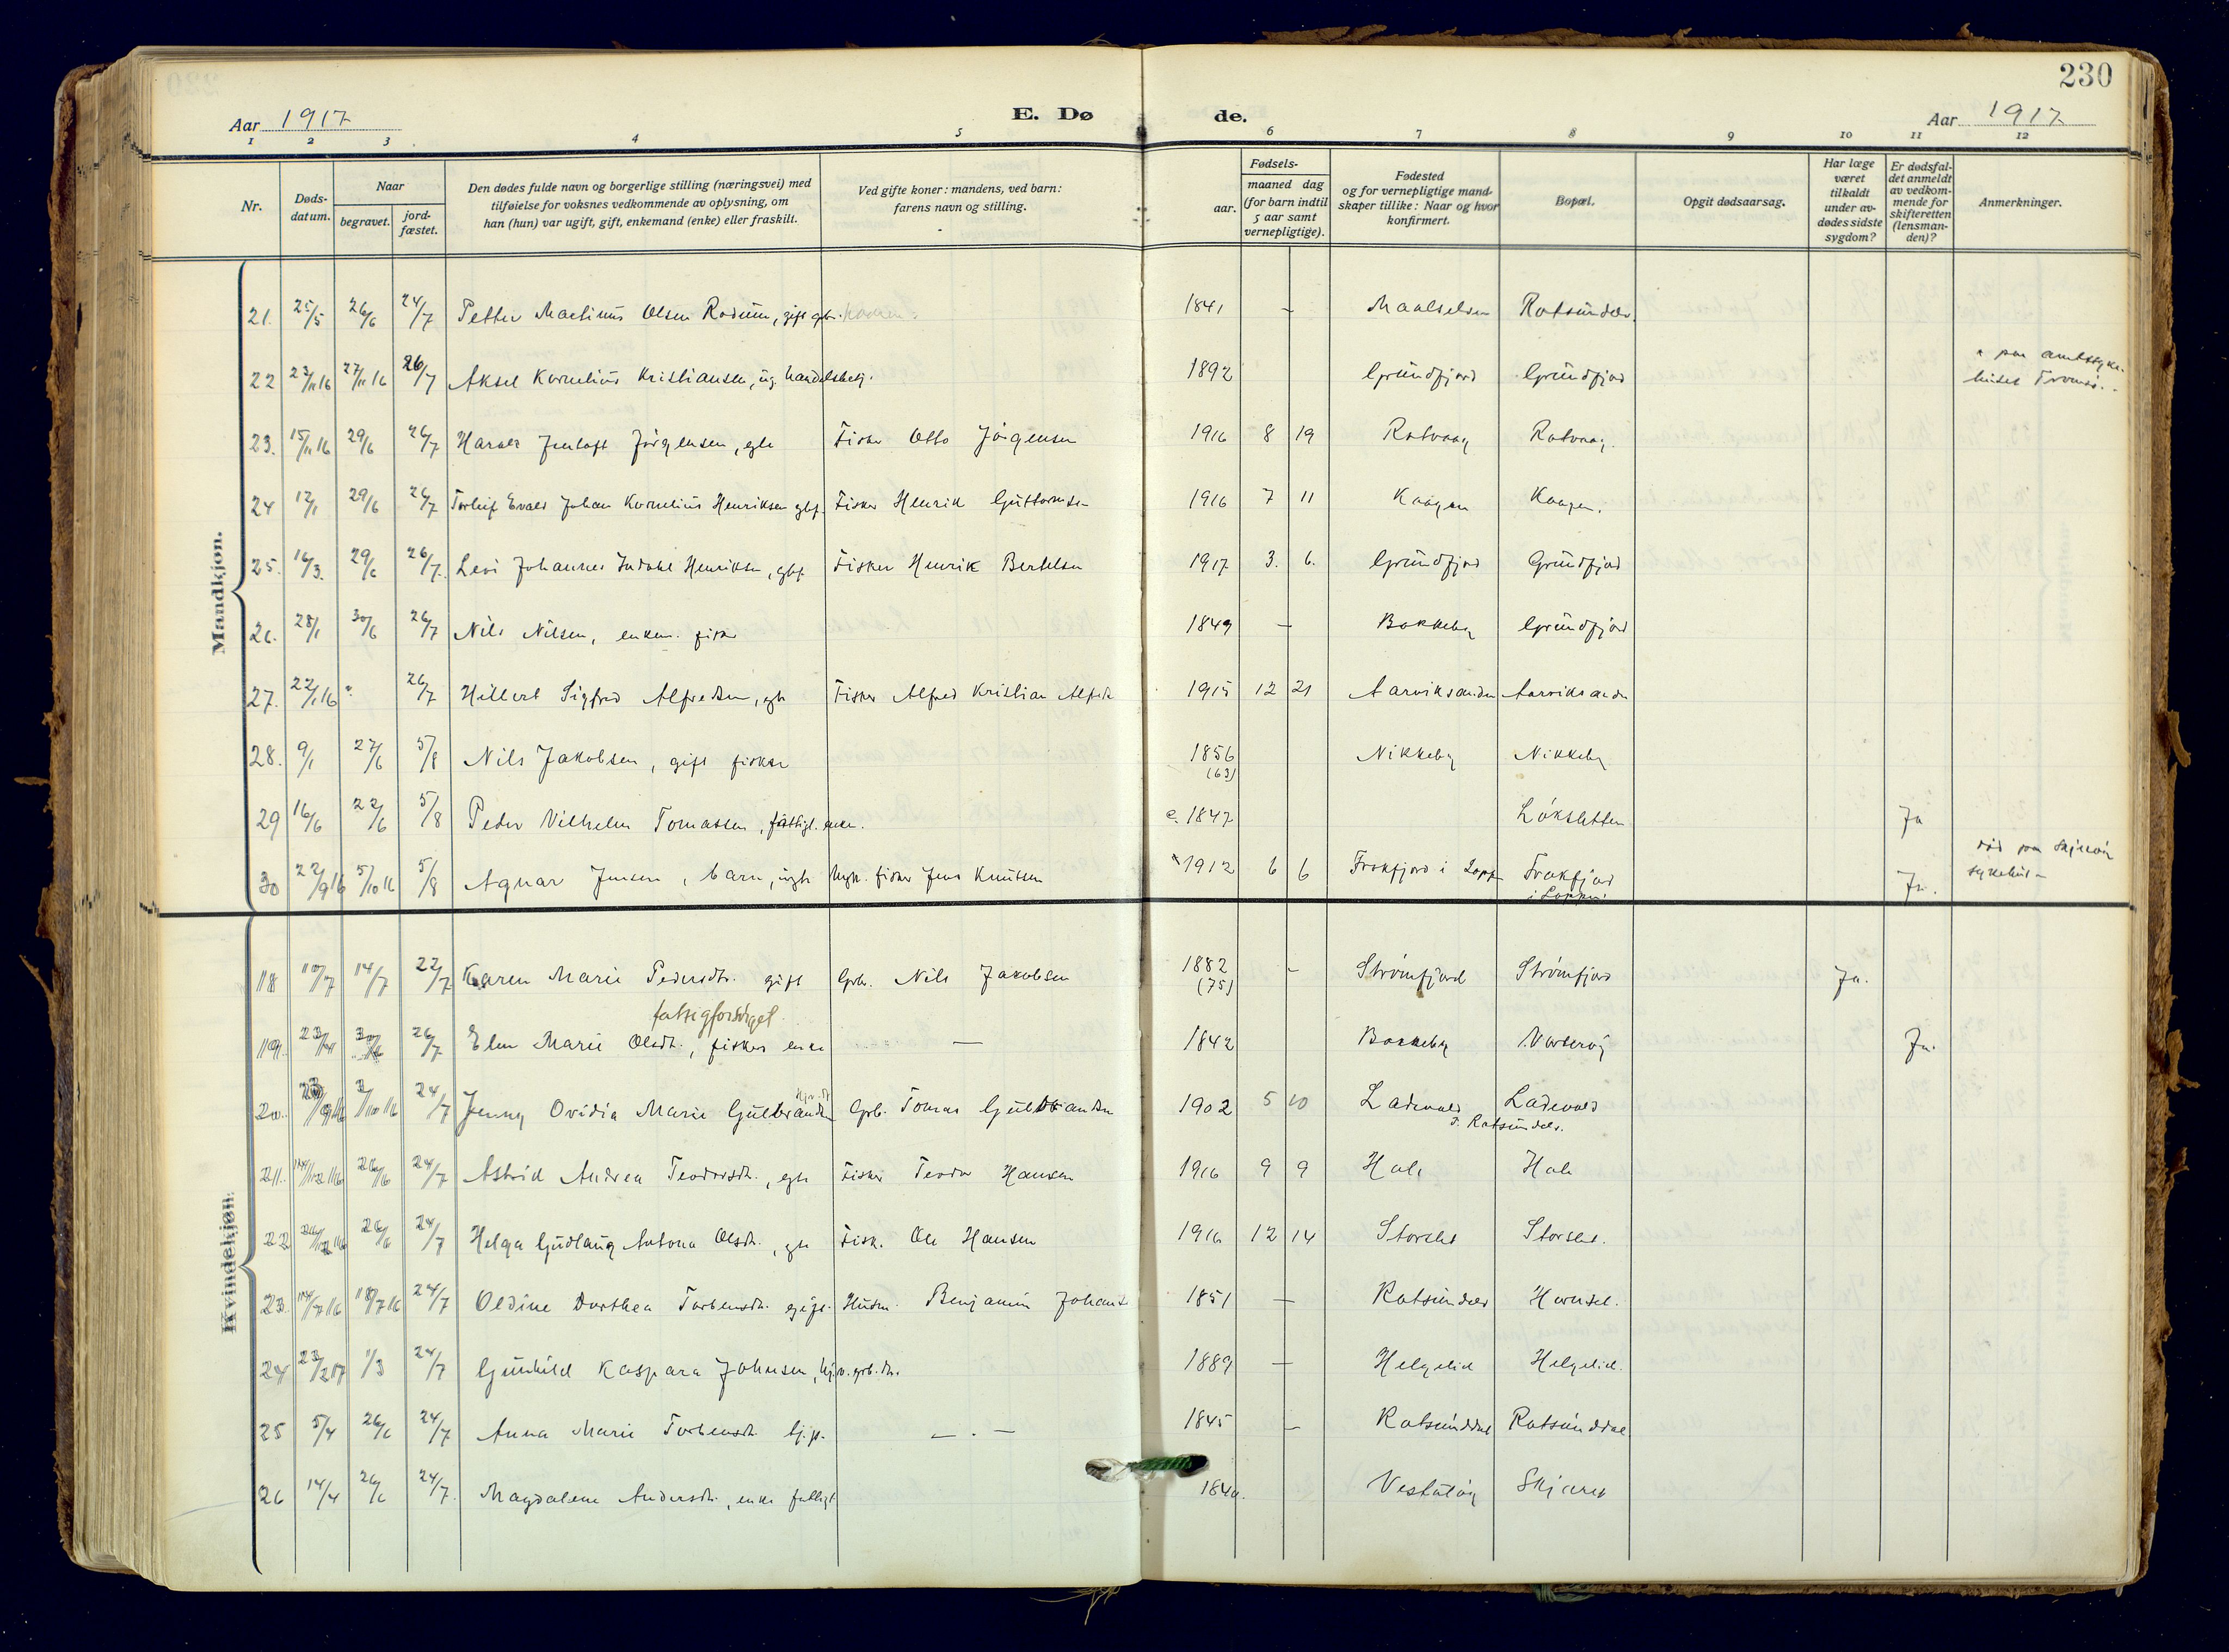 230
Aar 1917
E. Dø
de.
Aar 1917
1 2 3 4 5 6 7 8 9 10 11 12
Nr.
Døds-
datum.
Naar
begravet.
jord-
fæstet.
Den dødes fulde navn og borgerlige stilling (næringsvei) med
tilføielse for voksnes vedkommende av oplysning, om
han (hun) var ugift, gift, enkemand (enke) eller fraskilt.
Ved gifte koner: mandens, ved barn:
farens navn og stilling.
Fødsels-
aar.
maaned dag
(for barn indtil
5 aar samt
vernepligtige).
Fødested
og for vernepligtige mand-
skaper tillike: Naar og hvor
konfirmert.
Bopæl.
Opgit dødsaarsag.
Har læge
været
tilkaldt
under av-
dødes sidste
sygdom?
Er dødsfal-
det anmeldt
av vedkom-
mende for
skifteretten
(lensman-
den)?
Anmerkninger.
Mandkjøn.
21. 25/5 26/6 24/7 Petter Martinus Olsen, gift gbr. 1841 - Maalselven Rotsunddal.
22 23/11 16 27/11 16 26/7 Aksel Kornelius Kristiansen, ug. handelsbetj. 1892 Grundfjord Grundfjord paa amtssyke-
huset Tromsö.
23. 15/11 16 29/6 26/7 Harald Jentoft Jörgensen, egte Fisker Otto Jörgensen 1916 8 19 Rotvaag Rotvaag.
24 12/1 29/6 26/7 Torleif Evald Johan Kornelius Henriksen Fisker Henrik Guttormsen 1916 7 11 Kaagen Kaagen.
25. 16/3. 29/6 26/7. Levi Johannes Henriksen, Fisker Henrik Bertelsen 1917 3. 6. Grundfjord Grundfjord
26. 28/1 30/6 26/7 Nils Nilsen, enkem. fisker 1849 - Bakkeby Grundfjord
27. 22/1 16 ? 26/7 Hilbert Sigfred Alfredsen, egte Fisker Alfred Kristian 1915 12 21 Aarviksanden Aarviksanden
28. 9/1 27/6 5/8 Nils Jakobsen, gift fisker 1856 Nikkeby Nikkeby
(63)
29 16/6 22/6 5/8 Peder Vilhelm Tomassen, fattigl. enkem. c. 1847 Lökslatten Ja
30 22/9 16 5/10 16 5/8 Agnar Jensen, barn, fisker Jens Knutsen 1912 6 6 Frakfjord i Loppen Frakfjord
i Loppen. Ja. död paa Skjervöy
sykehus
Kvindekjøn.
18 10/7 14/7 22/7 Karen Marie Pedersdtr. gift Gbr. Nils Jakobsen 1882 - Strömfjord Strömfjord Ja.
(75)
fatsigforsörget
19. 23/4 30/6 26/7 Elen Marie Olsdtr., fisker enke — 1842 Bakkeby Ja.
20. 2/10 16 24/7 Jenny Ovidia Marie Gulbrandsen Grb. Tomas Gulbrandsen 1902 5 10 Ladevold Ladevold
i Rotsunddalen.
21. 14/12 16 26/6 24/7 Astrid Andrea Teodorsdtr., egte Fisker Teodor Hansen 1916 9 9 Hale Hale
22 26/12 16 26/6 24/7 Helga Gudlaug Antona Olsdtr., egte Fisk. Ole Hansen 1916 12 14 Storslet Storslet.
23. 14/7 16 18/7 16 24/7 Oldine Dorthea Torbensdtr. gift. Husm. Benjamin Johans 1851 - Rotsunddal Havnsel.
24 23/2 17 1/3 24/7 Gunhild Kaspara Johnsen, 1889 - Helgelid Helgelid.
25 5/4 26/6 24/7 Anna Marie Torbensdtr. — . — 1845 - Rotsunddal Rotsunddal
26 14/4 26/6 24/7. Magdalena Andersdtr., enke fattigl. 1840. Skjervø